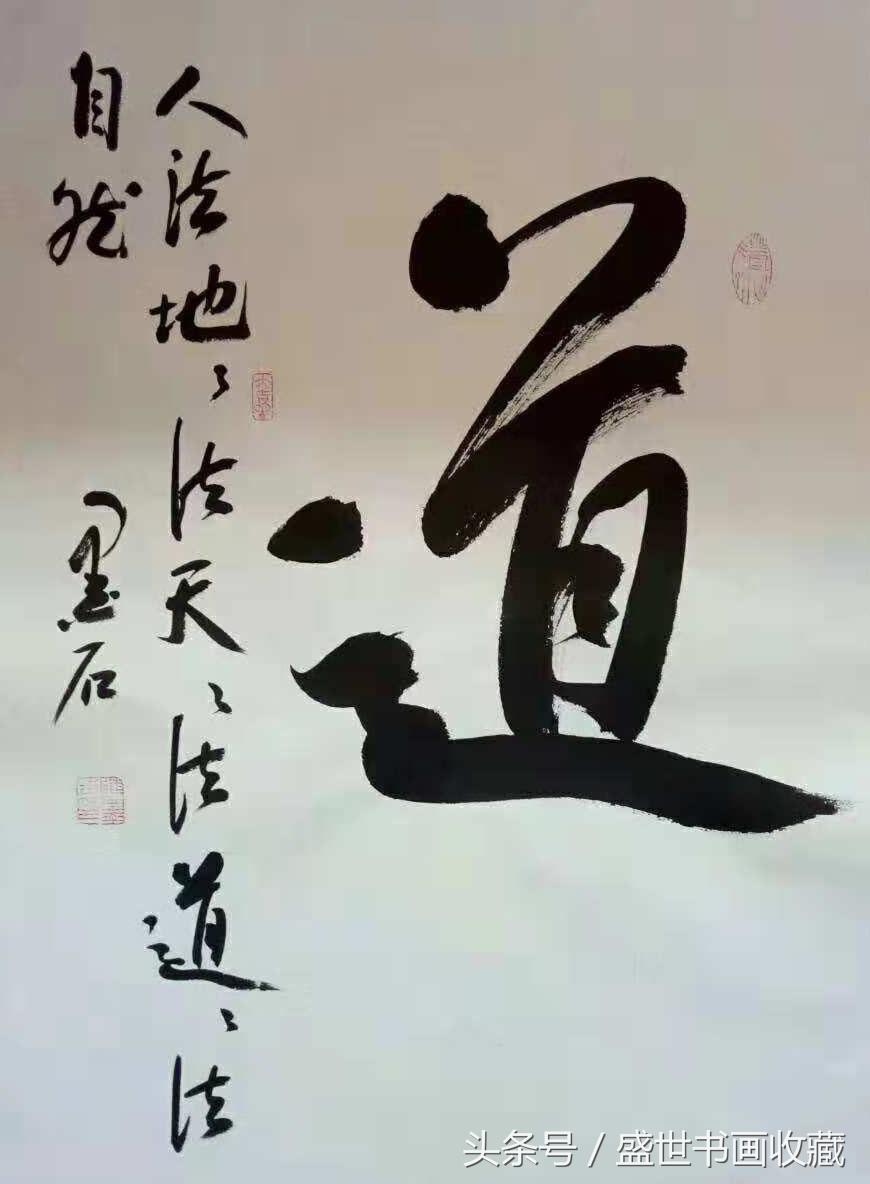 道
人法地々法天々法道々法
自然
墨石
头条号 / 盛世书画收藏